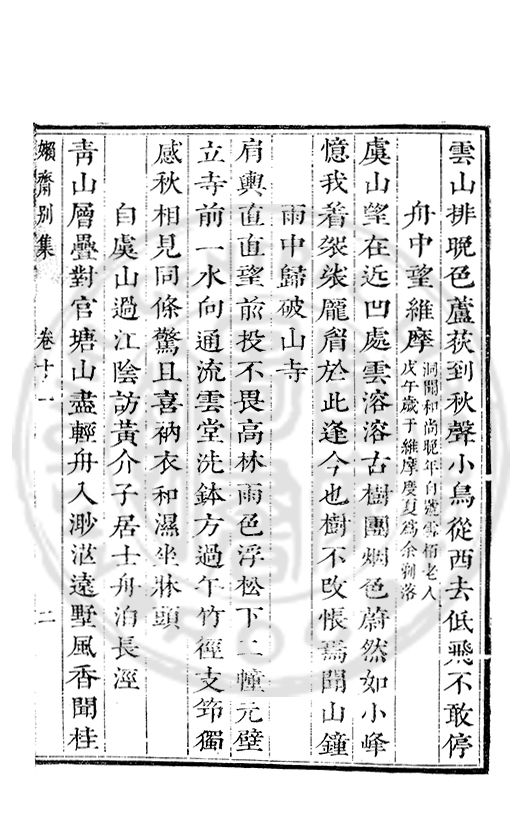 雲山排晚色蘆荻到秋聲小鳥從西去低飛不敢停
舟中望維摩
洞聞和尚晚年自號雲栢老人
戊午歲于維摩度夏爲余剃落
虞山望在近凹處雲溶溶古樹團烟色蔚然如小峰
憶我着袈裟龎眉於此逢今也樹不改悵焉聞山鐘
雨中歸破山寺
肩輿直直望前投不畏高林雨色浮松下二幢元璧
立寺前一水向通流雲堂洗鉢方過午竹徑支笻獨
感秋相見同條驚且喜衲衣和濕坐牀頭
自虞山過江陰訪黃介子居士舟泊長涇
青山層疊對官塘山盡輕舟入渺茫遠墅風香聞桂
嬾齋別集
卷十一
二